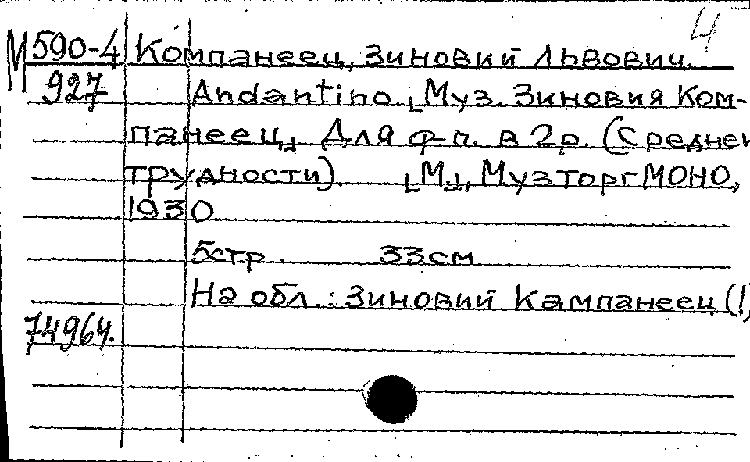 4
М 590-4 Компанеец, Зиновий Львович.
927 Andantino [Муз. Зиновия Ком-
панеец] Для ф-п. в 2р. (Средней
трудности). [М.], Музторг МОНО,
1930
5стр. 33см
На обл.: Зиновий Кампанеец (!)
74964.